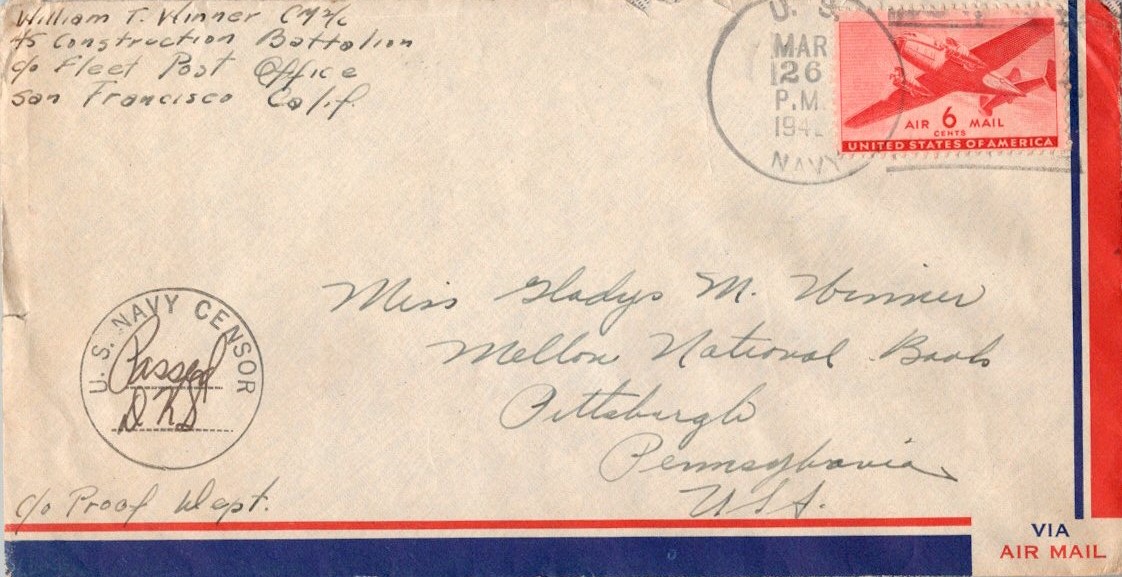 William T. Winner CM2/c
45 Construction Battalion
c/o Fleet Post Office
San Francisco Calif.
U. S.
MAR
26
P.M.
194
NAVY
AIR 6 MAIL
CENTS
UNITED STATES OF AMERICA
Miss Gladys M. Winner
Mellon National Bank
Pittsburgh
Pennsylvania
U.S.A.
U. S. NAVY CENSOR
Passed
c/o Proof Dept.
VIA
AIR MAIL